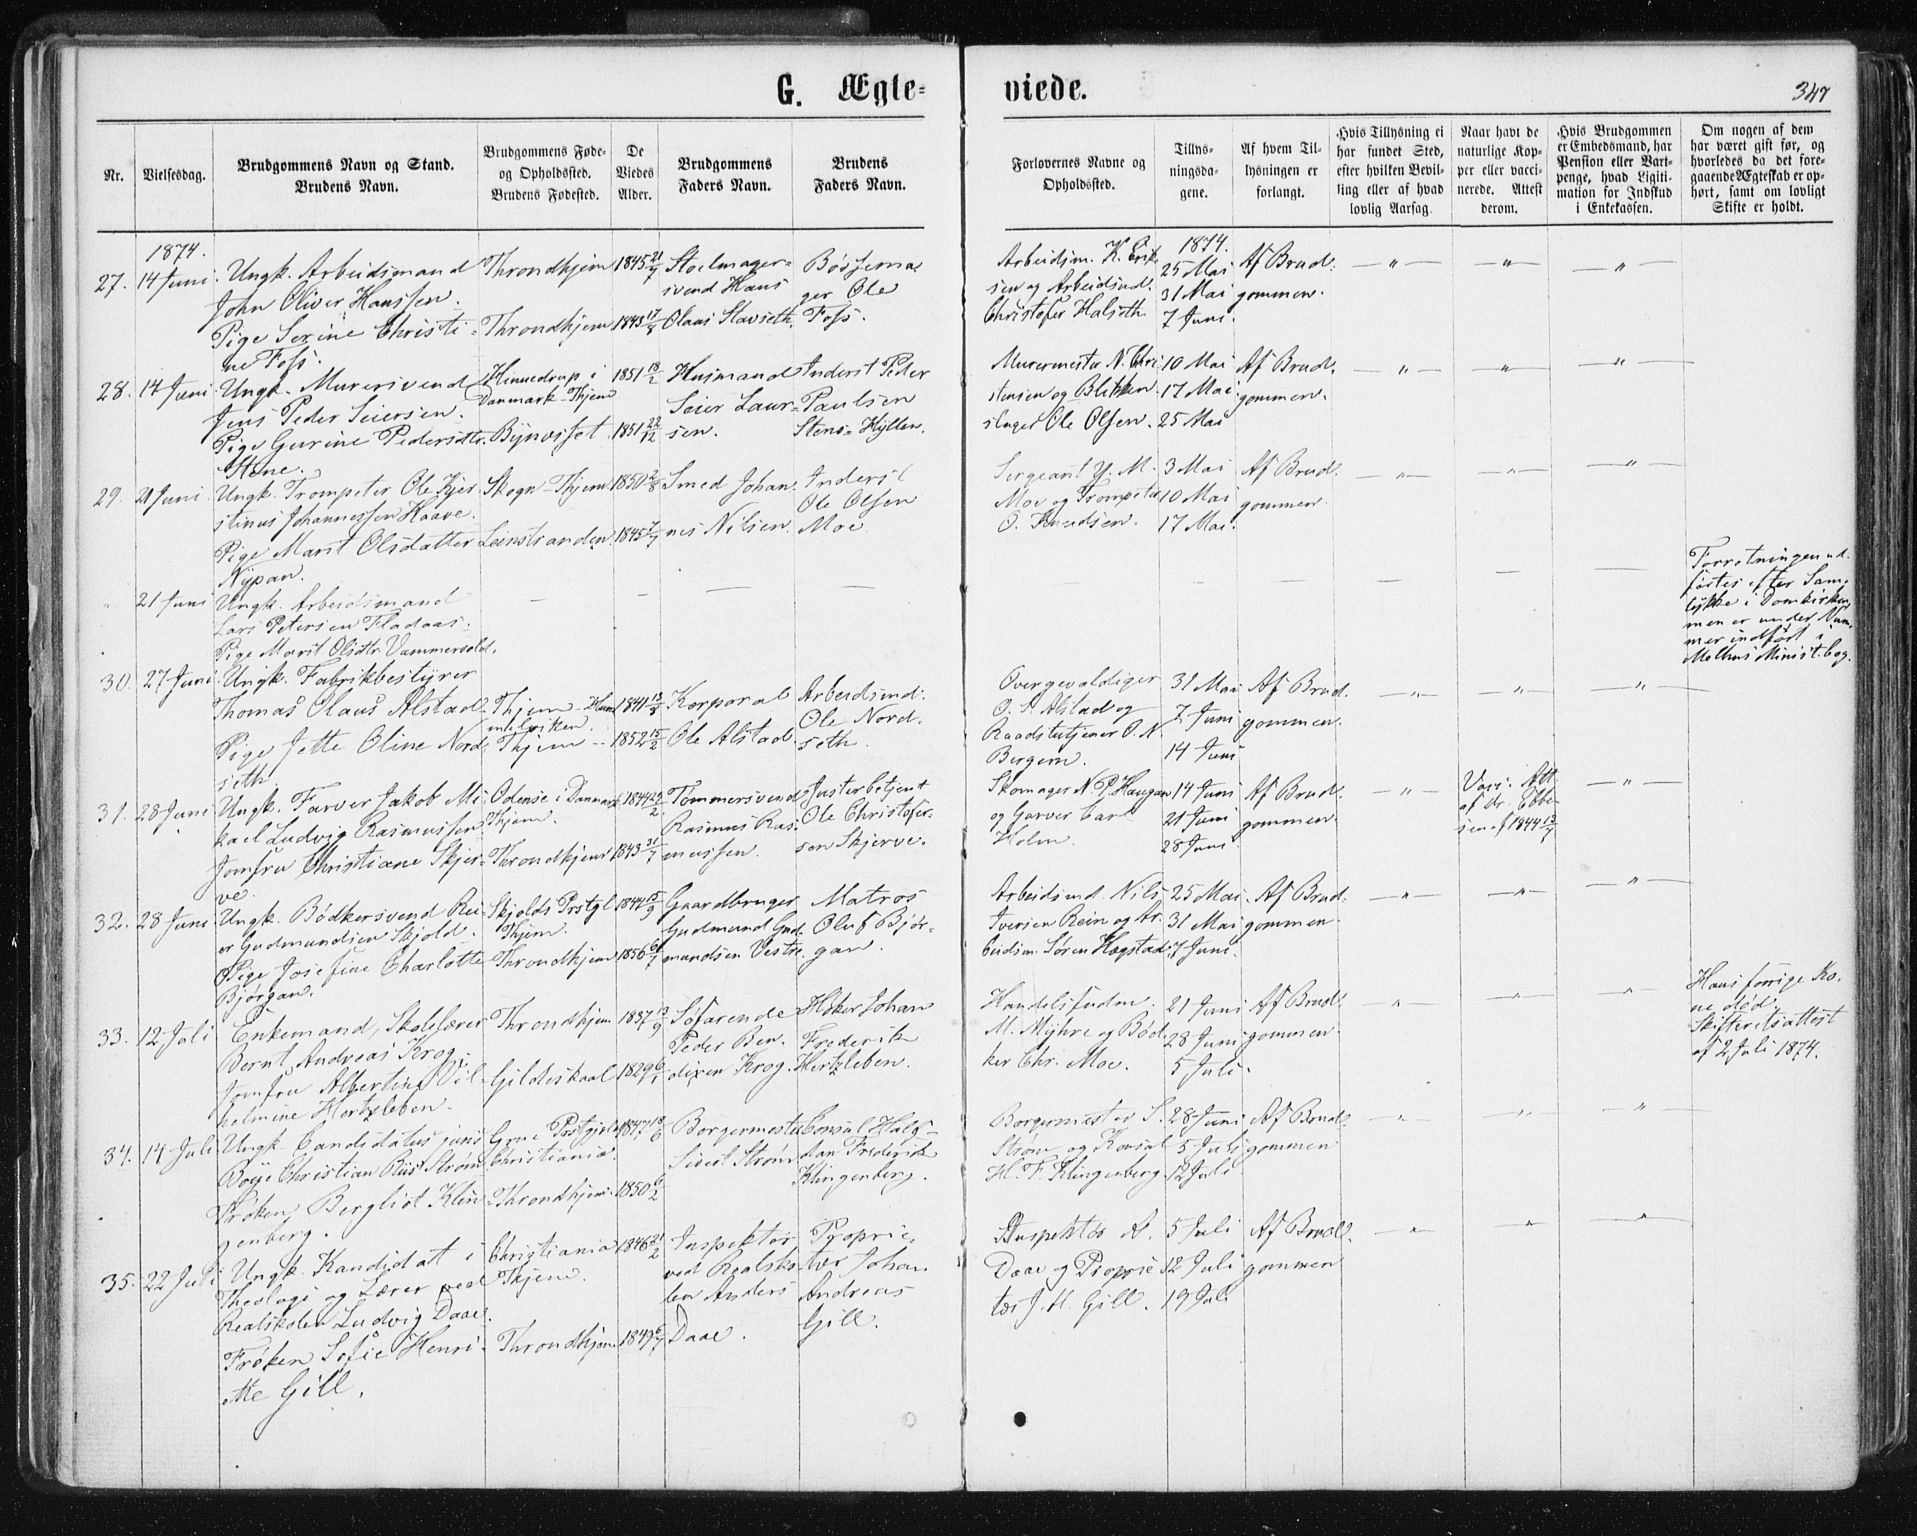 G. Ægte=
viede.
347
Nr.
Vielsesdag.
Brudgommens Navn og Stand.
Brudens Navn.
Brudgommens Føde-
og Opholdssted.
Brudens Fødested.
De
Viedes
Alder.
Brudgommens
Faders Navn.
Brudens
Faders Navn.
Forlovernes Navne og
Opholdssted.
Tillys-
ningsda-
gene.
Af hvem Til-
lysningen er
forlangt.
Hvis Tillysning ei
har fundet Sted,
efter hvilken Bevil-
ling eller af hvad
lovlig Aarsag.
Naar havt de
naturlige Kop-
per eller vacci-
nerede. Attest
derom.
Hvis Brudgommen
er Embedsmand, har
Pension eller Vart-
penge, hvad Ligiti-
mation for Indskud
i Enkekassen.
Om nogen af dem
har været gift før, og
hvorledes da det fore-
gaaende Ægteskab er op-
hørt, samt om lovligt
Skifte er holdt.
1874.
27. 14 Juni
Ungk. Arbeidsmand
John Oliver Hanssen.
Pige Serine Christi-
ne Foss.
Throndhjem
Throndhjem
1845 21/9
1843 17/8
Stolmager-
svend Hans
Olaus Stavseth.
Bøssema-
ger Ole
Foss.
Arbeidsm. K. Erik-
sen og Arbeidsmd.
Christofer Halseth
1874.
25 Mai
31 Mai
7 Juni.
Af Brud-
gommen.
28. 14 Juni
Ungk. Murersvend
Jens Peder Seiersen.
Pige Gurine Pedersdtr.
Stene.
Hinnedrup i
Danmark - Thjem
Bynæsset
1851 18/2
1851 22/12
Husmand
Seier Laur-
sen.
Inderst Peder
Paulsen
Stene-Hyllen.
Murermester N. Chri
stensen og Blikken-
slager Ole Olsen.
10 Mai
17 Mai
25 Mai
Af Brud-
gommen.
29. 21 Juni
Ungk. Trompeter Ole Kjer
stinus Johannessen Haave.
Pige Marit Olsdatter
Nypan.
Skogn - Thjem
Leinstranden
1850 2/8
1845 7/7
Smed Johan-
nes Nilsen.
Inderst
Ole Olsen
Moe
Sergeant
Moe og Trompeter
O. Knudsen.
3 Mai
10 Mai
17 Mai.
Af Brud-
gommen.
" 21 Juni
Ungk. Arbeidsmand
Lars Petersen Fladaas.
Pige Marit Olsdtr Vammervold.
Forretningen ud-
førtes efter Sam-
tykke i Domkirken,
men er under Num-
mer indført i
Melhus Minist. bog.
30. 27 Juni
Ungk. Fabrikbestyrer
Thomas Olaus Alstad
Pige Jette Oline Nord-
seth
Thjem - Hum
melviken.
Thjem
1841 13/8
1852 15/2
Korporal
Ole Alstad.
Arbeidsmd.
Ole Nord-
seth.
Overgevaldiger
O. Alstad og
Raadstutjener O. N.
Bergem.
31 Mai
7 Juni
14 Juni
Af Brud-
gommen.
31. 28 Juni
Ungk. Farver Jakob Mi-
kael Ludvig Rasmussen
Jomfru Christiane Skjer-
ve.
Odense i Danmark
Thjem.
Throndhjem
1844
1843 31/7
Tømmersvend
Rasmus Ras-
mussen.
Justerbetjent
Ole Christofer-
sen Skjerve.
Skomager N. P. Haugan
og Garver Carl
Holm.
14 Juni
21 Juni
28 Juni
Af Brud-
gommen.
Vacc. Att.
af dr. Ebbe-
sen af 1844
32. 28 Juni
Ungk. Bødkersvend Rei-
er Gudmundsen Skjold.
Pige Josefine Charlotte
Bjørgan.
Skjolds Prstgl.
Thjem.
Throndhjem
1844 15/9
1856 6/7
Gaardbruger
Gudmund Gud-
mundsen Vestre.
Matros
Oluf Bjør-
gan.
Arbeidsmd. Nils
Iversen Rein og Ar-
beidsm. Søren Hægstad.
25 Mai.
31 Mai
7 Juni.
Af Brud-
gommen.
33. 12 Juli
Enkemand, Skolelærer
Bernt Andreas Krog.
Jomfru Albertine Vil-
helmine Hertzleben.
Throndhjem
Gildeskaal
1837 13/9
1829 6/1
Søfarende
Peder Ben-
dixen Krog.
Høker Johan
Frederik
Hertzleben.
Handelsfuldm.
M. Myhre og Bød-
ker Chr. Moe.
21 Juni
28 Juni
5 Juli.
Af Brud-
gommen.
Hans forrige Ko-
ne død.
Skifteretsattest
af 2 Juli 1874.
34. 14 Juli
Ungk. Candidatus juris
Boye Christian Riis Strøm
Frøken Bergliot Klin-
genberg.
Grue Prstgjeld
Christiania.
Throndhjem.
1847 18/6
1850 6/2
Borgermester
Sivert Strøm
Consul Half-
dan Frederik
Klingenberg.
Borgermester S.
Strøm og Konsul
H. F. Klingenberg.
28 Juni
5 Juli
12 Juli
Af Brud-
gommen
35. 22 Juli
Ungk. Kandidat i
Theologi og Lærer ved
Realskolen Ludvig Daae.
Frøken Sofie Henri-
ette Gill.
Christiania
Thjem.
Throndhjem
1846 21/2
1849 6/7
Inspektør
ved Realsko-
len Anders
Daae.
Proprie-
tær Johan
Andreas
Gill.
Inspektør A.
Daae og Proprie-
tær J. A. Gill.
5 Juli
12 Juli
19 Juli
Af Brud-
gommen